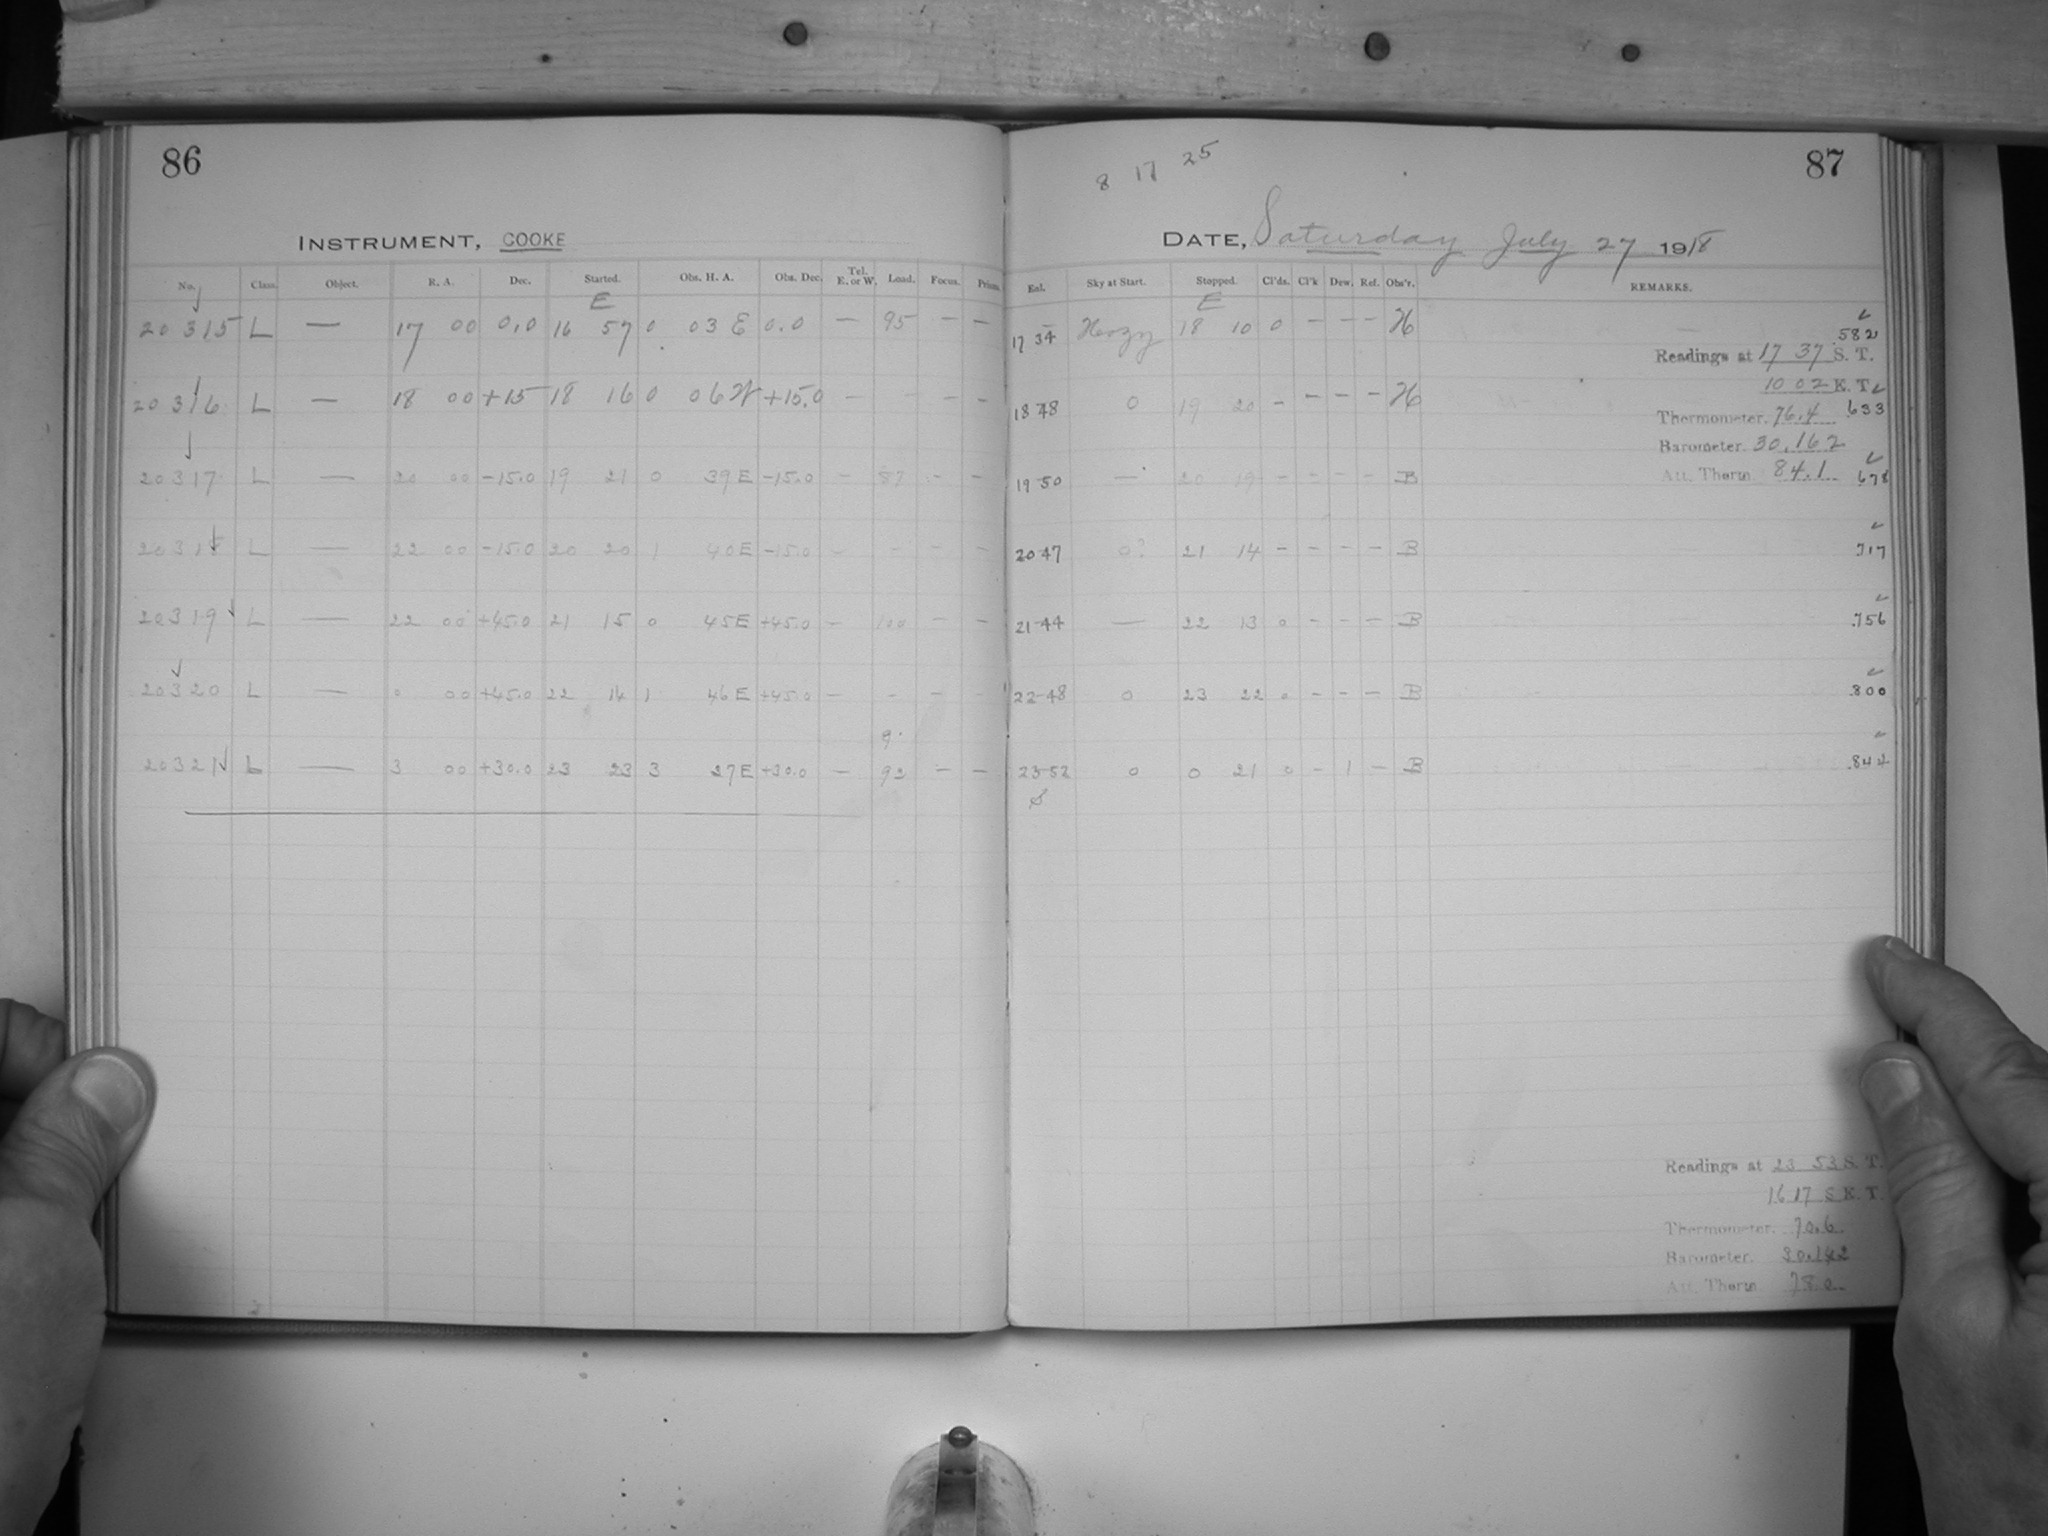 86
INSTRUMENT, COOKE
No. Class. Object. R. A. Dec. Started. Obs. H. A. Obs. Dec. Tel. E. or W. Load. Focus. Prism.
E
20315 L — 17 00 0.0 16 57 0 03 E 0.0 — 95 — —
20316 L — 18 00 +15 18 16 0 06 W +15.0 - - - —
20317 L — 20 00 -15.0 19 21 0 39 E -15.0 - 87 - -
20318 L — 22 00 -15.0 20 20 1 40 E -15.0 - - - -
20319 L — 22 00 +45.0 21 15 0 45 E +45.0 - 100 - -
20320 L — 0 00 +45.0 22 14 1 46 E +45.0 — - - -
20321 L — 3 00 +30.0 23 23 3 27 E +30.0 — 92 — —
87
8 17 25
DATE, Saturday July 27 1918
Eal. Sky at Start. Stopped. Cl'ds. Cl'k Dew. Ref. Obs'r. REMARKS.
E
17 34 Hazy 18 10 0 - - - H .582
Readings at 17 37 S. T.
10 02 E. T.
18 48 0 19 20 - - - - H .633
Thermometer. 76.4
Barometer. 30.162
Att. Therm. 84.1
19 50 — 20 19 - - - - B .678
20 47 0? 21 14 - - - - B .717
21 44 — 22 13 0 - - - B .756
22 48 0 23 22 0 - - - B .800
23 52 0 0 21 0 - 1 - B .844
S
Readings at 23 53 S. T.
16 17 S E. T.
Thermometer. 70.6
Barometer. 30.142
Att. Therm. 78.0